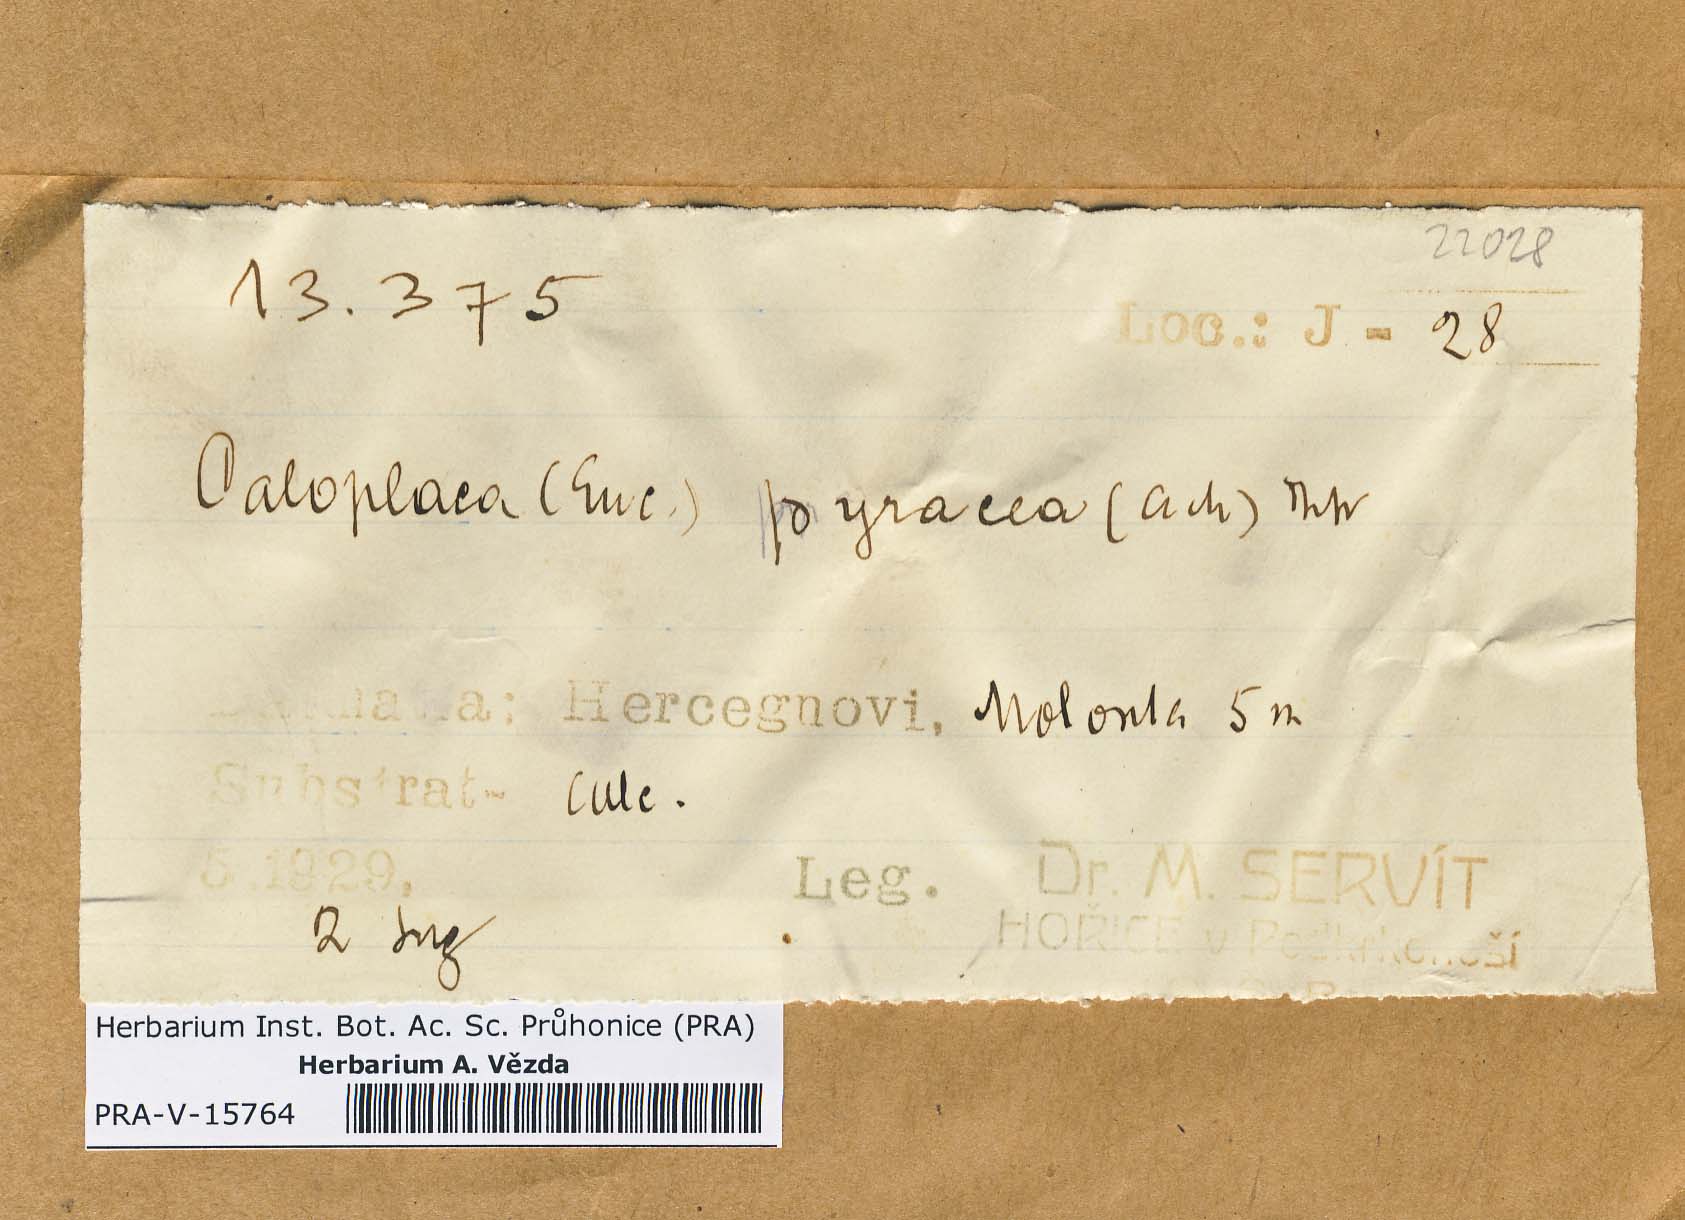 22028
13.375
Loc.: J - 28
Caloplaca (Euc.) pyracea (Ach)
Dalmatia: Hercegnovi, Molonta 5 m
Substrat- Calc.
5.1929.
Leg. Dr. M. SERVÍT
HOŘICE v Podkrkonoší
2
Herbarium Inst. Bot. Ac. Sc. Průhonice (PRA)
Herbarium A. Vězda
PRA-V-15764